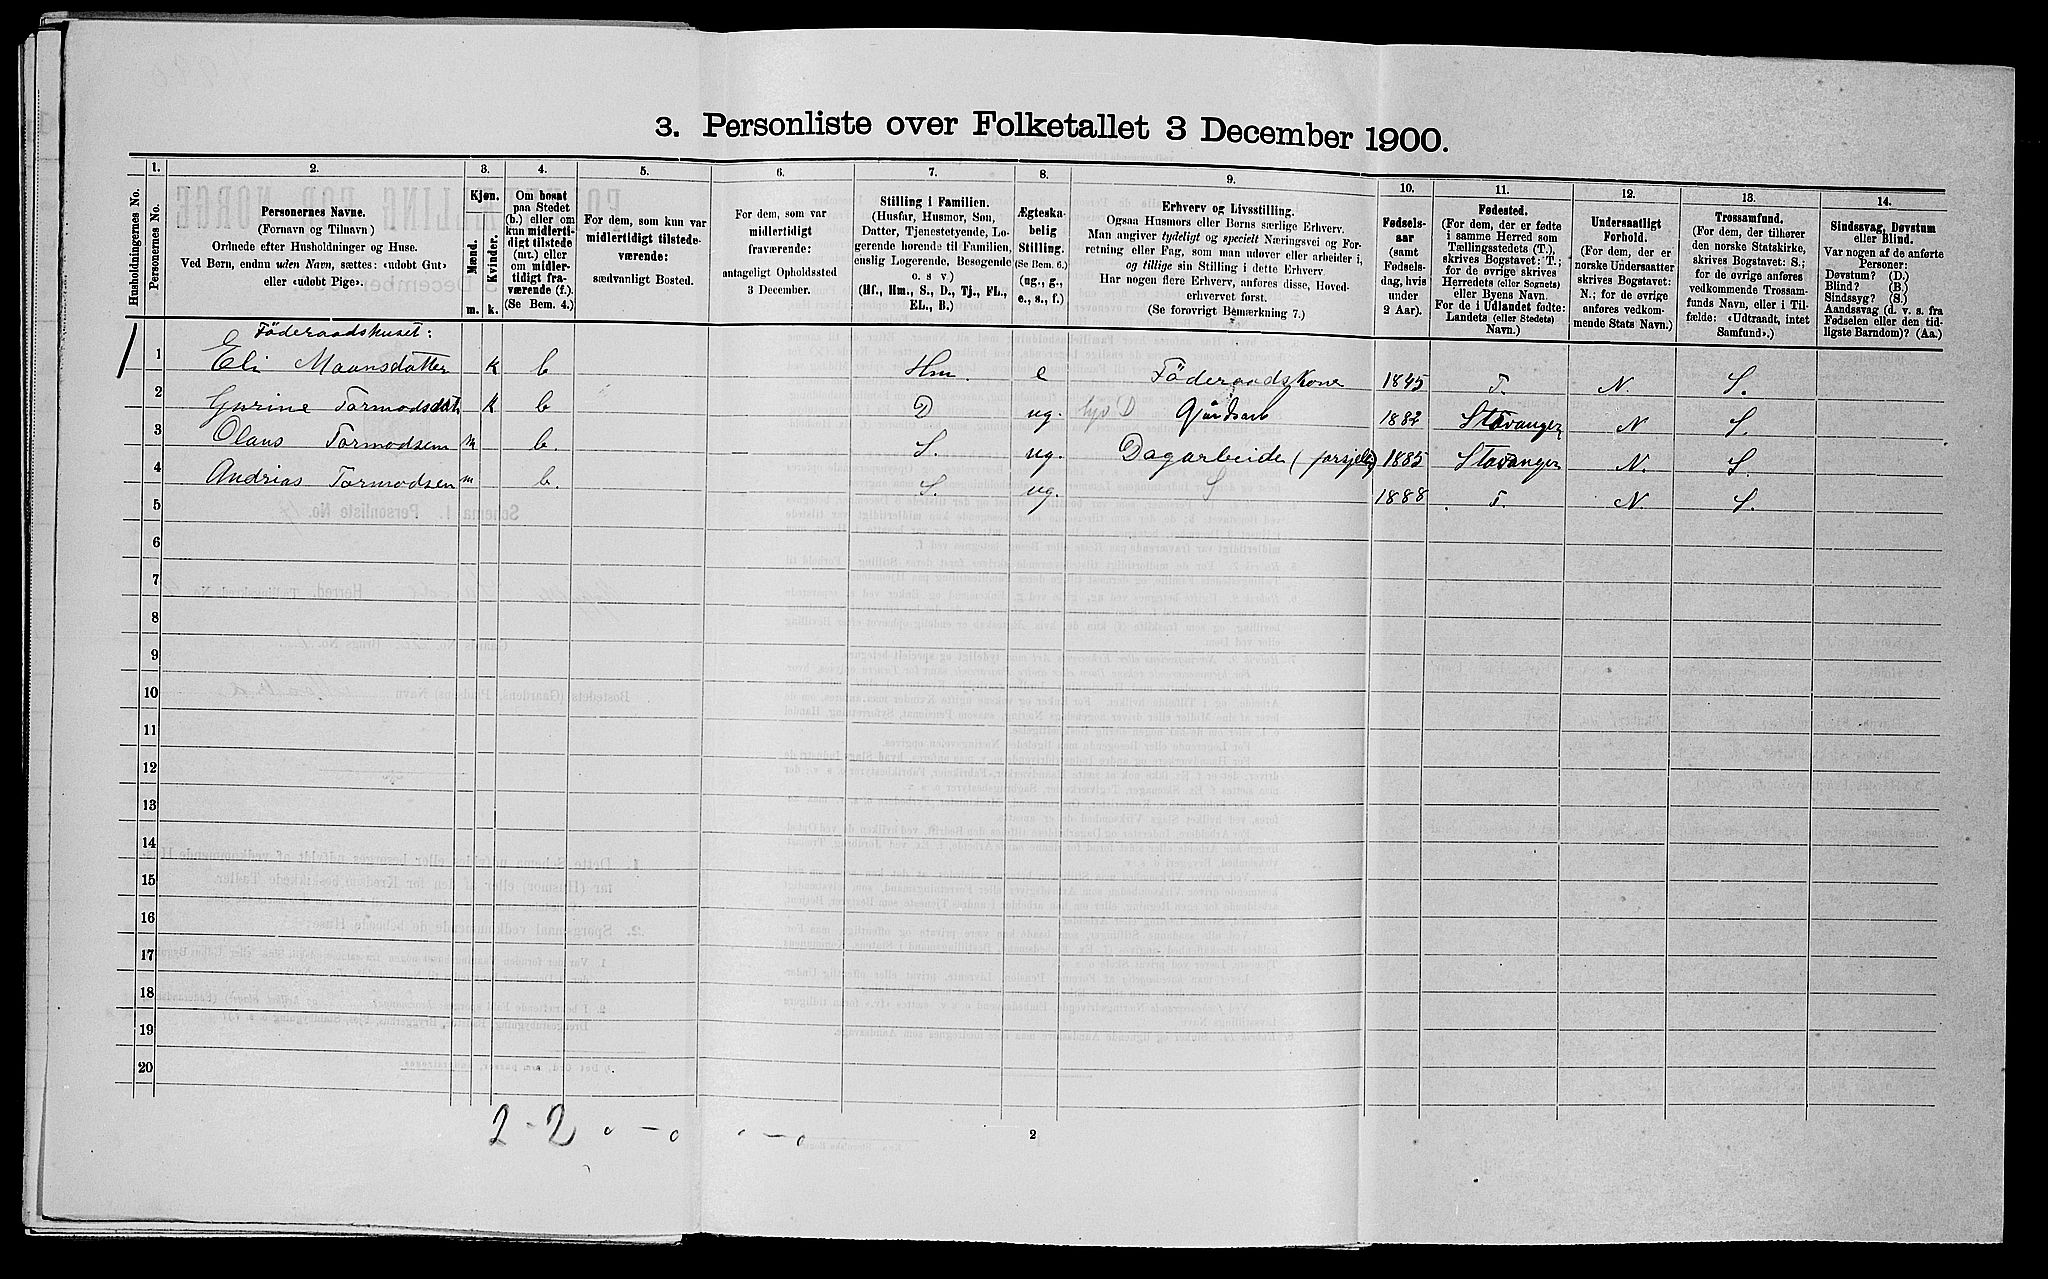 3. Personliste over Folketallet 3 December 1900.
1. 2. 3. 4. 5. 6. 7. 8. 9. 10. 11. 12. 13. 14.
Husholdningernes No.
Personernes No.
Personernes Navne.
(Fornavn og Tilnavn)
Ordnede efter Husholdninger og Huse.
Ved Børn, endnu uden Navn, sættes: «udøbt Gut»
eller «udøbt Pige».
Kjøn.
Mænd.
Kvinder.
m. k.
Om bosat
paa Stedet
(b.) eller om
kun midlerti-
digt tilstede
(mt.) eller
om midler-
tidigt fra-
værende (f.).
(Se Bem. 4.)
For dem, som kun var
midlertidigt tilstede-
værende:
sædvanligt Bosted.
For dem, som var
midlertidigt
fraværende:
antageligt Opholdssted
3 December.
Stilling i Familien.
(Husfar, Husmor, Søn,
Datter, Tjenestetyende, Lo-
gerende hørende til Familien,
enslig Logerende, Besøgende
o. s v.)
(Hf., Hm., S., D., Tj., FL.,
EL., B.)
Ægteska-
belig
Stilling.
(Se Bem. 6.)
(ug., g.,
e., s., f.)
Erhverv og Livsstilling.
Ogsaa Husmors eller Børns særlige Erhverv.
Man angiver tydeligt og specielt Næringsvei og For-
retning eller Fag, som man udøver eller arbeider i,
og tillige sin Stilling i dette Erhverv.
Har nogen flere Erhverv, anføres disse, Hoved-
erhvervet først.
(Se forøvrigt Bemærkning 7.)
Fødsels-
aar
(samt
Fødsels-
dag, hvis
under
2 Aar).
Fødested.
(For dem, der er fødte
i samme Herred som
Tællingsstedets (T.),
skrives Bogstavet: T.;
for de øvrige skrives
Herredets (eller Sognets)
eller Byens Navn.
For de i Udlandet fødte:
Landets (eller Stedets)
Navn.)
Undersaatligt
Forhold.
(For dem, der er
norske Undersaatter
skrives Bogstavet:
N.; for de øvrige
anføres vedkom-
mende Stats Navn.)
Trossamfund.
(For dem, der tilhører
den norske Statskirke,
skrives Bogstavet: S.;
for de øvrige anføres
vedkommende Trossam-
funds Navn, eller i Til-
fælde: «Udtraadt, intet
Samfund».)
Sindssvag, Døvstum
eller Blind.
Var nogen af de anførte
Personer:
Døvstum? (D.)
Blind? (B.)
Sindssyg? (S.)
Aandssvag (d. v. s. fra
Fødselen eller den tid-
ligste Barndom)? (Aa.)
Föderaadshuset:
1 1 Eli Maansdatter k b Hm. e Föderaadskone 1845 T. N. S.
2 Gurine Tormodsdat k b D ug. D Gårdsarb 1882 Stavanger N S.
3 Olaus Tormodsen m b. S. ug. Dagarbeide 1885 Stavanger N. S.
4 Andrias Tormodsen m b. S. ug. S 1888 T. N. S.
5
6
7
8
9
10
11
12
13
14
15
16
17
18
19
20
2 - 2 0 - 0 0 - 0
2